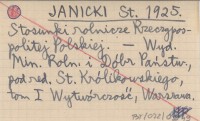 JANICKI St. 1925.
Stosunki rolnicze Rzeczypos-
politej Polskiej. — Wyd.
Min. Roln. i Dóbr Państw.,
pod red. St. Królikowskiego,
tom I Wytwórczość, Warszawa,